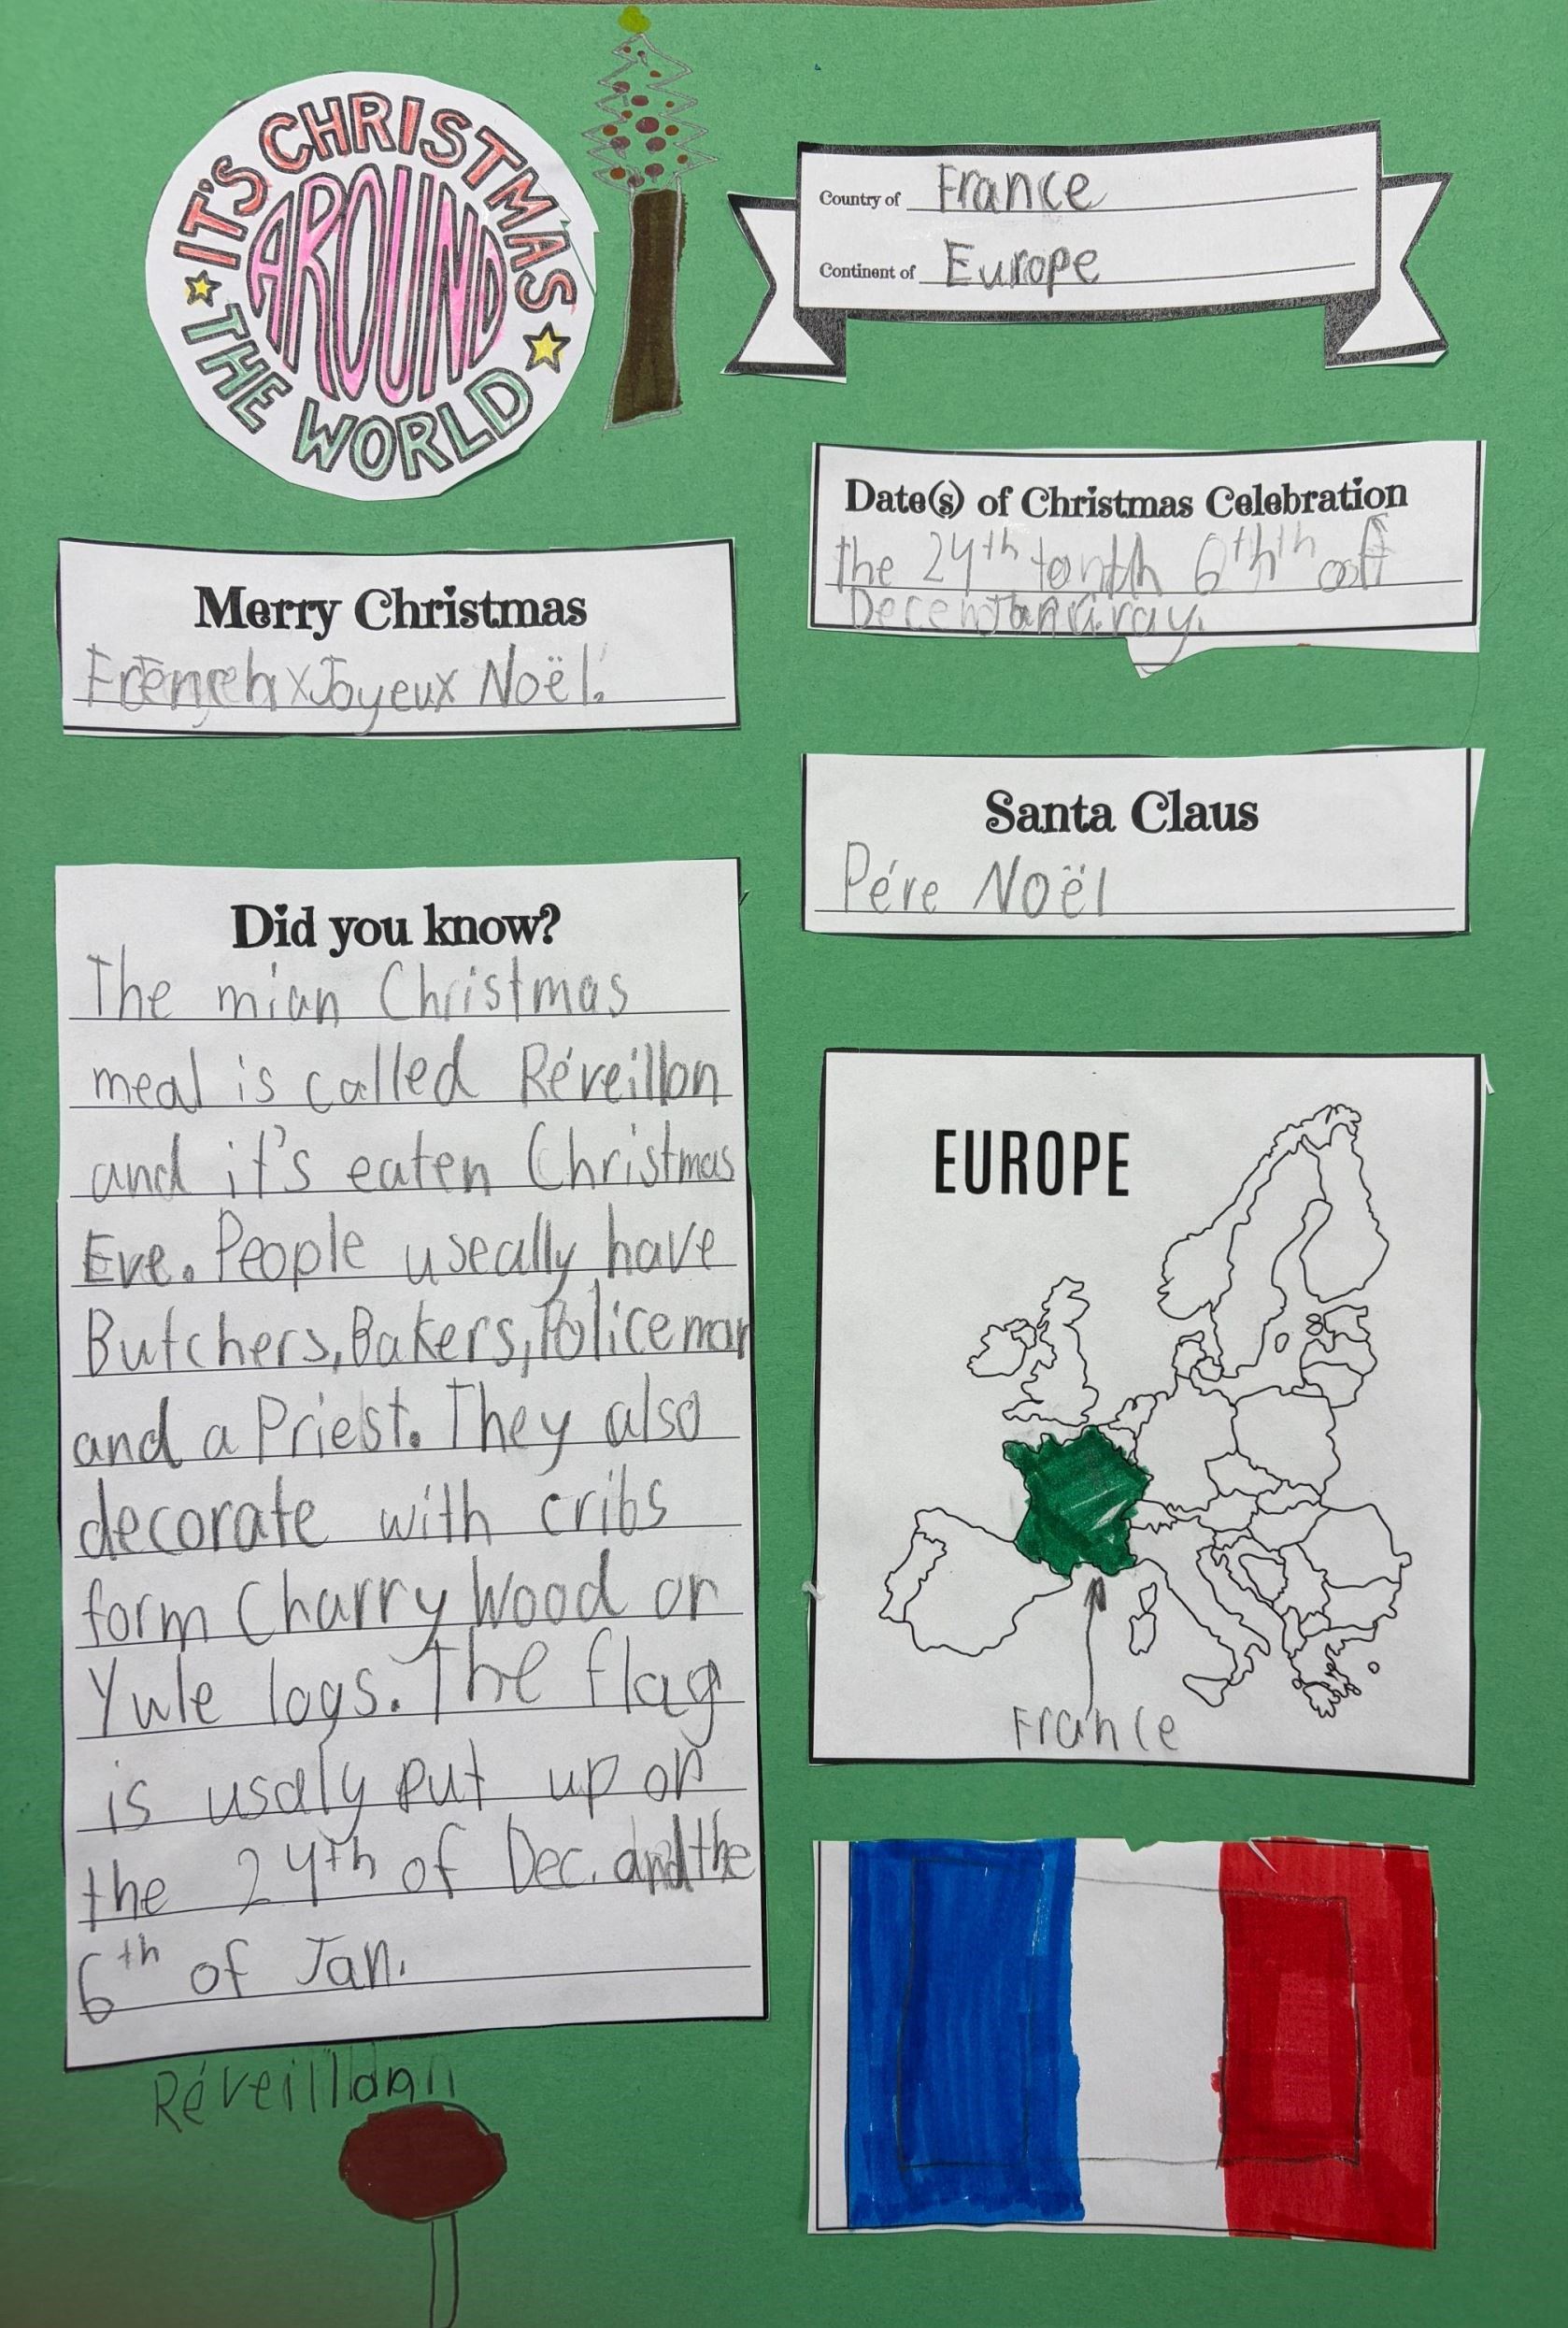 IT'S CHRISTMAS
AROUND
THE WORLD
Country of France
Continent of Europe
Date(s) of Christmas Celebration
the 24th 6th
Merry Christmas
Joyeux Noël.
Santa Claus
Pére Noël
Did you know?
The mian Christmas
meal is called Réveillon
and it's eaten Christmas
Eve. People useally have
Butchers, Bakers, Policeman
and a Priest. They also
decorate with cribs
form Charry Wood or
Yule logs. The flag
is usaly put up on
the 24th of Dec. and the
6th of Jan.
EUROPE
France